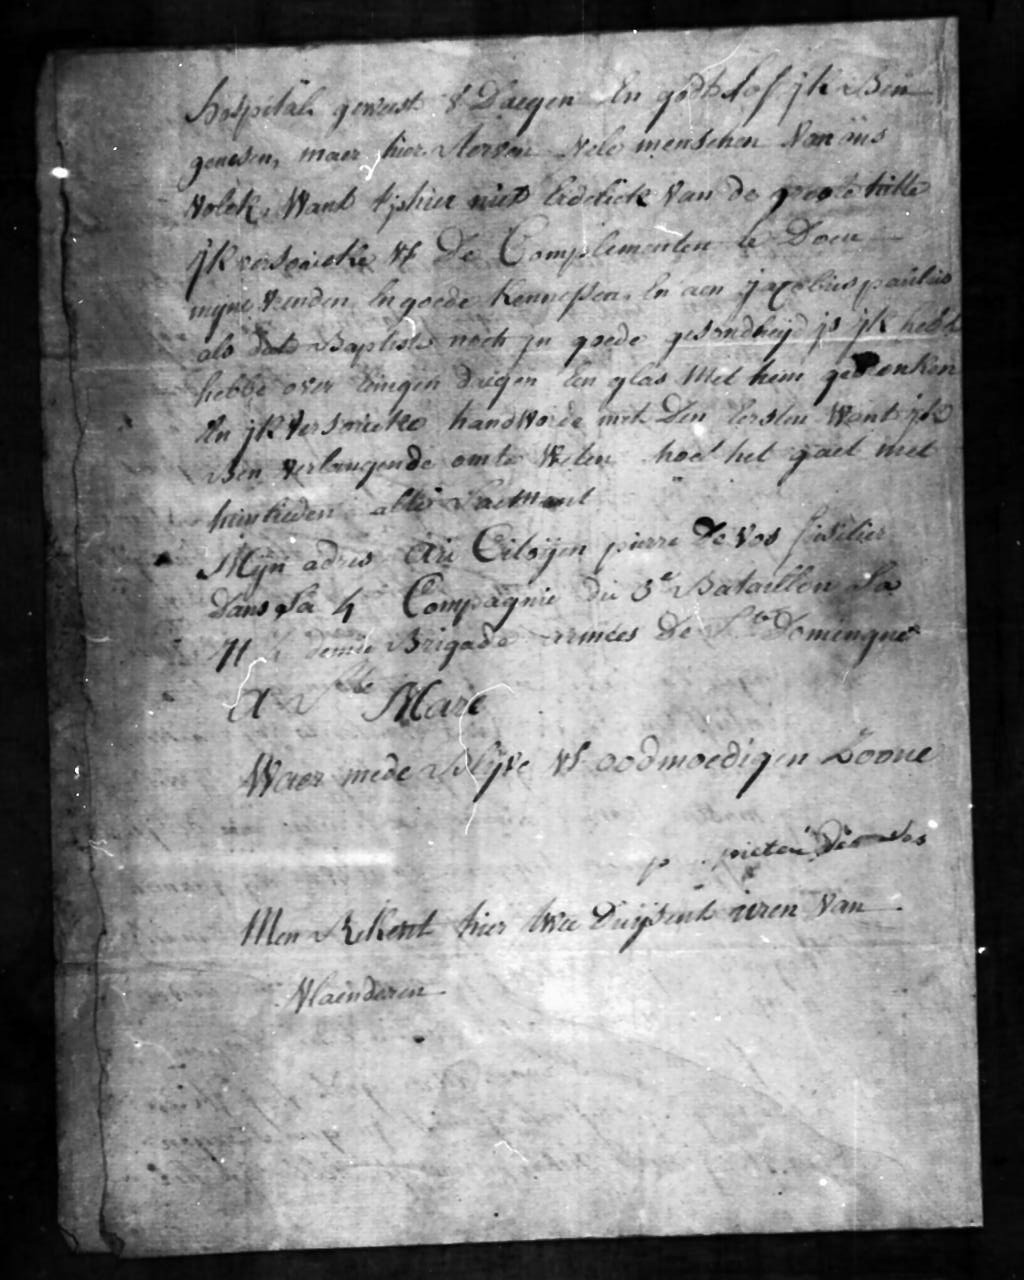 hospital geweest 8 Daegen En godt lof jk Ben
genesen, maer hier sterven vele menschen van ons
volck, Want tjshier niet liedelick van de groote hitte
jk versoucke Ul De Complementen te Doen
mijne vrinden En goede kennessen, En aen jacobus paulus
als dat Baptiste noch jn goede gesondheijd js jk heb
hebbe over Eenigen dagen Een glas Met hem gedronken
En jk versoucke handworde met Den Eersten Want jk
Ben verlangende om te Weten hoe het gaet met
hunlieden alle saemant
Mijn adres Au Citoijen pierre De vos fusilier
Dans La 4 Compagnie du 3e Bataillon La
71 demie Brigade armées De Ste Domingue
A Ste Marc
Waer mede Blijve Ul oodmoedigen Zoone
pieter De vos
Men Rekent hier twee Duijsent uren van
Vlaenderen